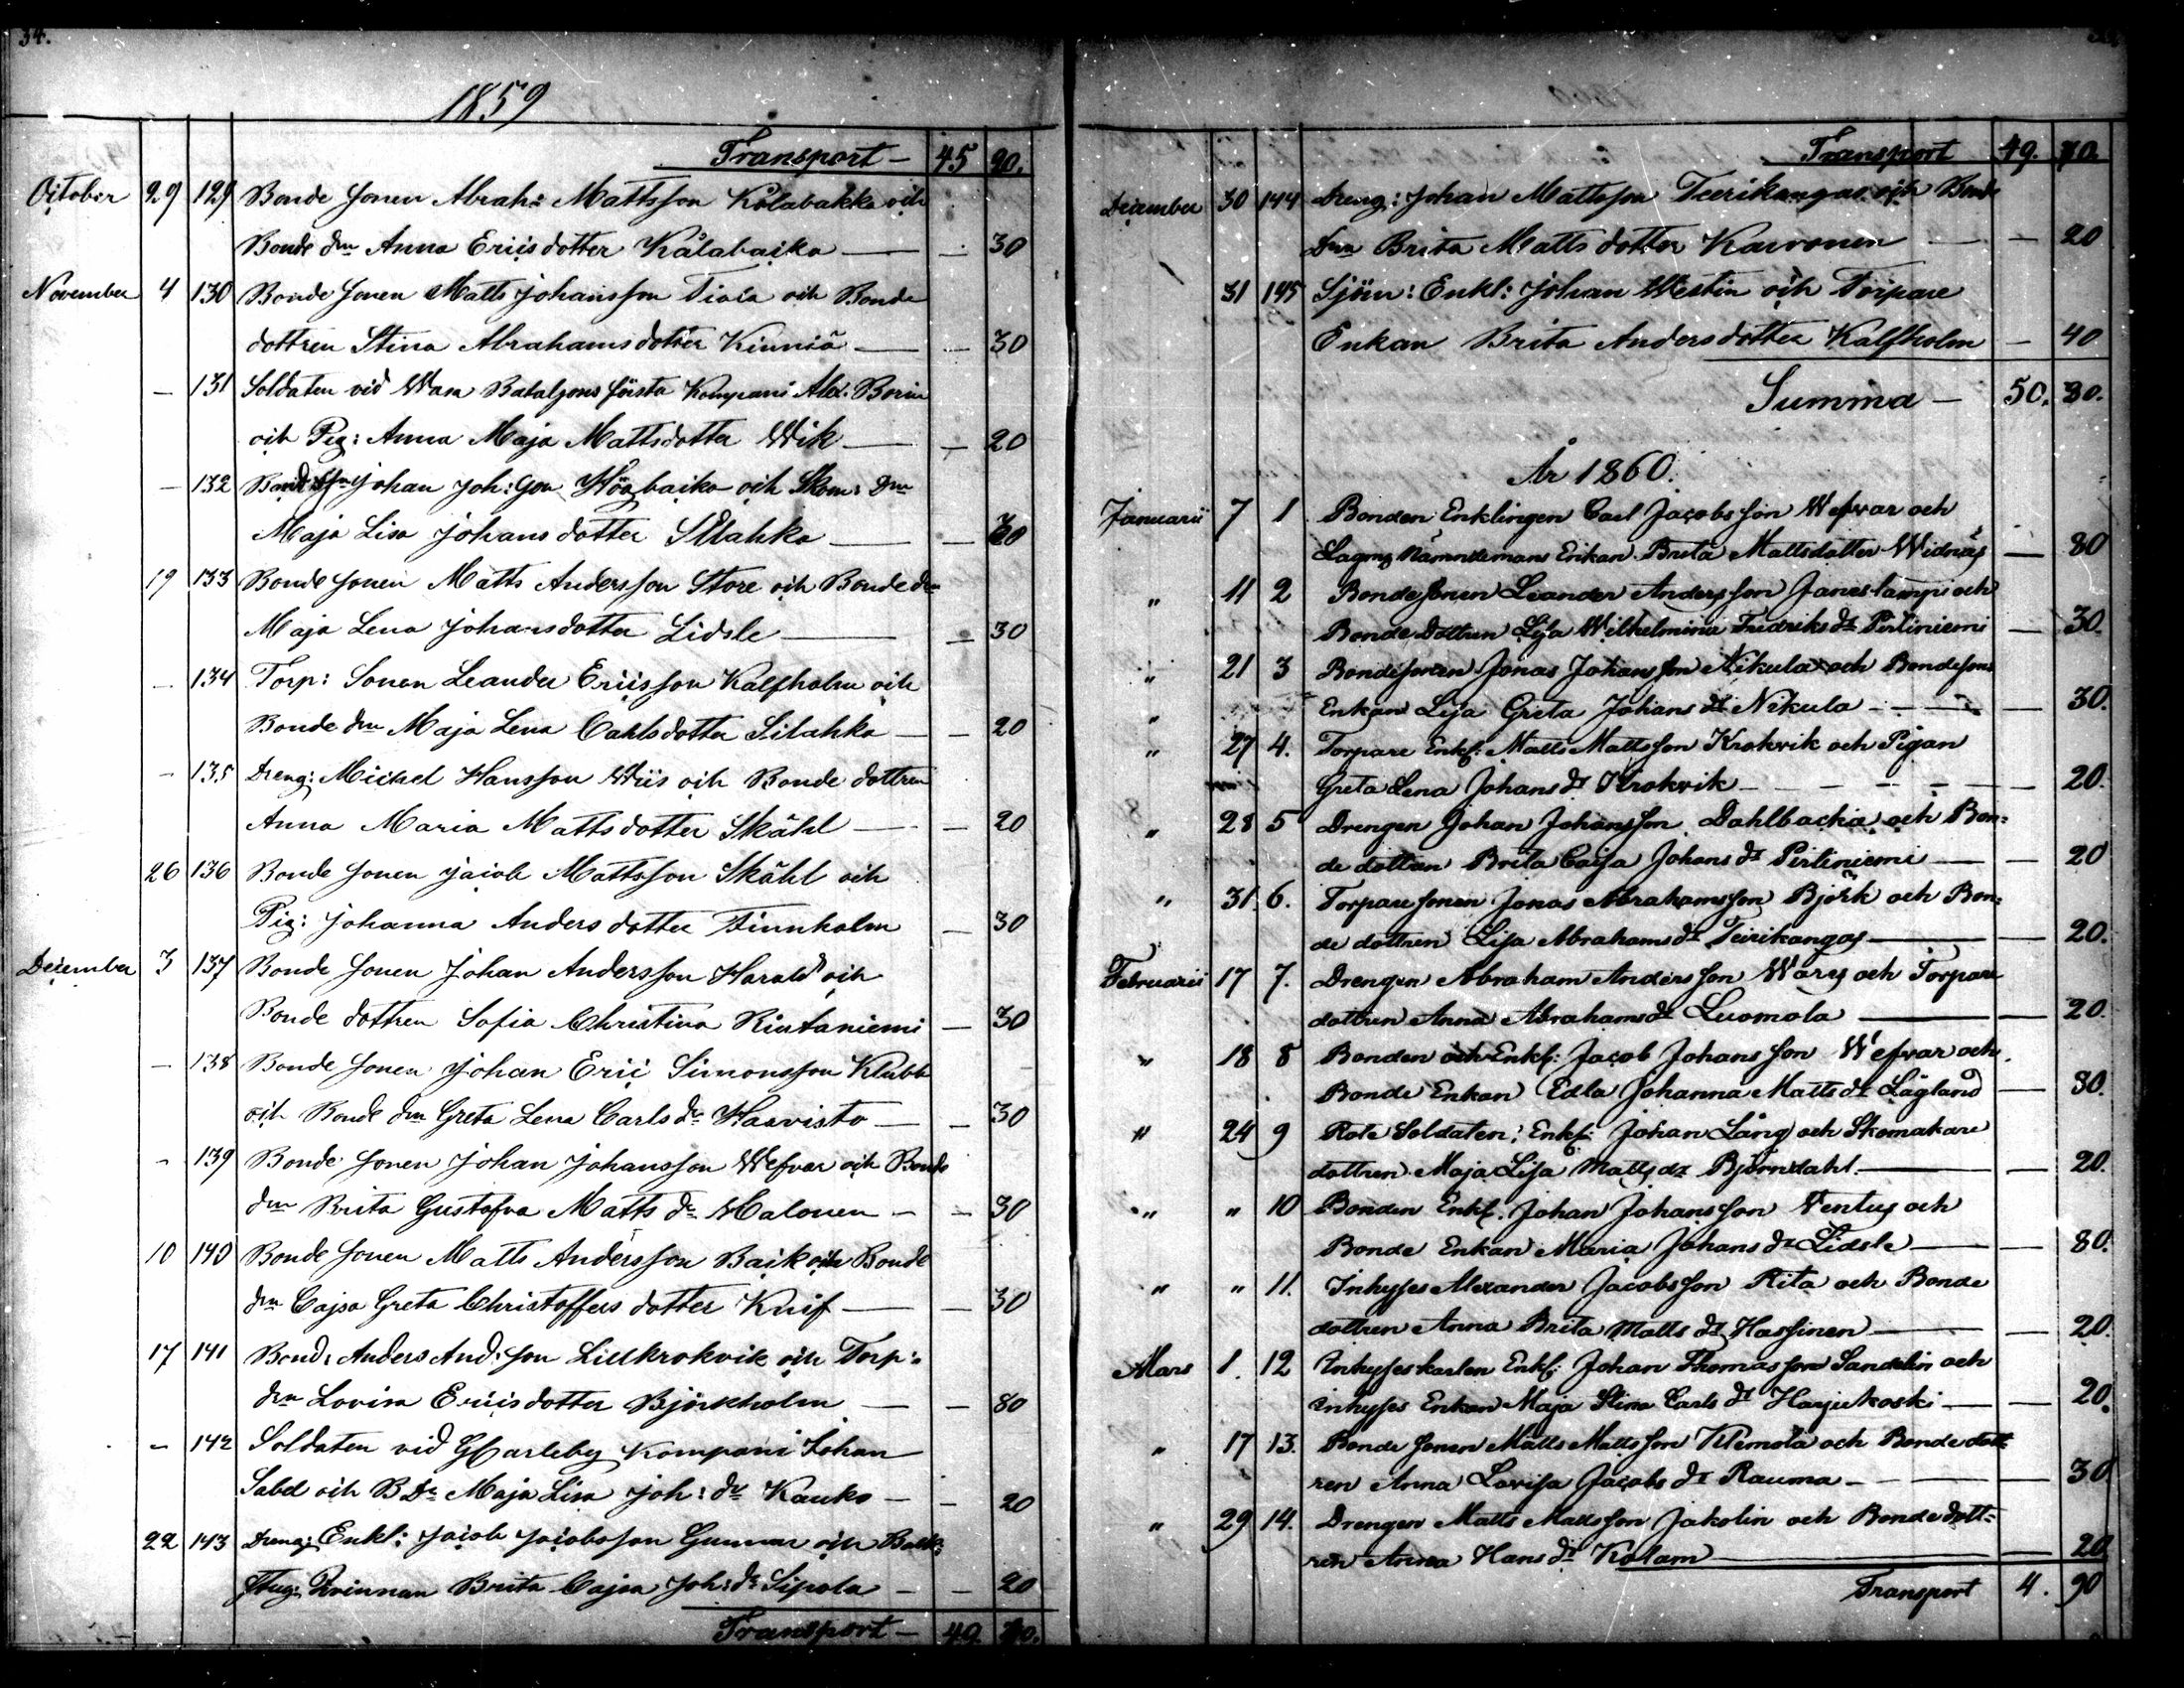 34.
1859
Transport — 45 90.
October 29 129 Bonde sonen Abrah: Mattsson Kålabakka och
Bonde dn Anna Ericsdotter Kålabacka — — 30
November 4 130 Bonde sonen Matts Johansson Tiala och Bonde
dottren Stina Abrahamsdotter Kinniä — — 30
— 131 Soldaten vid Wasa Bataljons första Kompani Alex: Borin
och Pig: Anna Maja Mattsdotter Wik — — 20
— 132 Johan Joh:son Högbacka och Skom: Dn
Maja Lisa Johansdotter Slahka — — 30
19 133 Bonde sonen Matts Andersson Store och Bonde dn
Maja Lena Johansdotter Lidsle — — 30
— 134 Torp: Sonen Leander Ericsson Kalfholm och
Bonde dn Maja Lena Carlsdotter Silahka — — 20
— 135 Dreng: Michel Hansson Wiis och Bonde dottren
Anna Maria Mattsdotter Skåhl — — 20
26 136 Bonde sonen Jacob Mattsson Skåhl och
Pig: Johanna Andersdotter Finnholm — 30
December 3 137 Bonde sonen Johan Andersson Harald och
Bonde dottren Sofia Christina Rintaniemi — 30
— 138 Bonde sonen Johan Eric Simonsson Klubb
och Bonde dn Greta Lena Carls dr Haavisto — — 30
— 139 Bonde sonen Johan Johansson Wefvar och Bonde
dn Brita Gustafva Matts dr Malonen — — 30
10 140 Bonde sonen Matts Andersson Back och Bonde
dn Cajsa Greta Christoffersdotter Knif — — 30
17 141 Bond: Anders And:son Lillkrokvik och Torp:
dn Lovisa Ericsdotter Björkholm — — 80
— 142 Soldaten vid GCarleby Kompani Johan
Sabel och B Dr Maja Lisa Joh: dr Kauko — — 20
22 143 Dreng: Enkl: Jacob Jacobsson Gunnar och
Qvinnan Brita Cajsa Joh: dr Sipola — — 20
Transport — 49. 70.
Transport 49. 70.
December 30 144 Dreng: Johan Mattsson Teerikangas och Bonde
Dn Brita Mattsdotter Karvonen — — 20
31 145 Sjöm: Enkl: Johan Westin och Torpare
Enkan Brita Andersdotter Kalfholm — 40
Summa — 50. 30.
År 1860.
Januarii 7 1 Bonden Enklingen Carl Jacobsson Wefvar och
Nämndemans Enkan Brita Mattsdotter Widnäs — 80
" 11 2 Bondesonen Leander Andersson Janeslampi och
Bonde Dottren Lisa Wilhelmina Fredriks dr Pirliniemi — 30.
" 21 3 Bondesonen Jonas Johansson Nikula och Bondesons
" Enkan Lisa Greta Johans dr Nikula — — — 30.
" 27 4. Torpare Enkl: Matts Mattsson Krokvik och Pigan
Greta Lena Johans dr Krokvik — — — — — 20.
" 28 5 Drengen Johan Johansson Dahlbacka och Bon=
de dottren Brita Caisa Johans dr Pirliniemi — — 20
" 31. 6. Torparesonen Jonas Abrahamsson Björk och Bon=
de dottren Lisa Abrahams dr Teirikangas — — 20.
Februarii 17 7. Drengen Abraham Andersson Warg och Torpare
dottren Anna Abrahams dr Luomala — — 20.
" 18 8 Bonden Enkl: Jacob Johansson Wefvar och
Bonde Enkan Edla Johanna Matts dr Lågland — 80.
" 24 9 Rote Soldaten: Enkl: Johan Lång och Skomakare
dottren Maja Lisa Matts dr Björndahl. — — 20.
" " 10 Bonden Enkl. Johan Johansson Ventus och
Bonde Enkan Maria Johans dr Lidsle — — 80.
" " 11. Inhyses Alexander Jacobsson Rita och Bonde
dottren Anna Brita Matts dr Hassinen — — 20.
Mars 1. 12 Inhyseskarlen Enkl: Johan Thomasson Sandelin och
Inhyses Enkan Maja Stina Carls dr Harjukoski — — 20.
" 17 13. Bonde sonen Matts Mattsson Klemola och Bondedott=
ren Anna Lovisa Jacobs dr Rauma — — — 30
" 29 14. Drengen Matts Mattsson Jakolin och Bondedott=
ren Anna Hans dr Kolam — — 20
Transport 4. 90